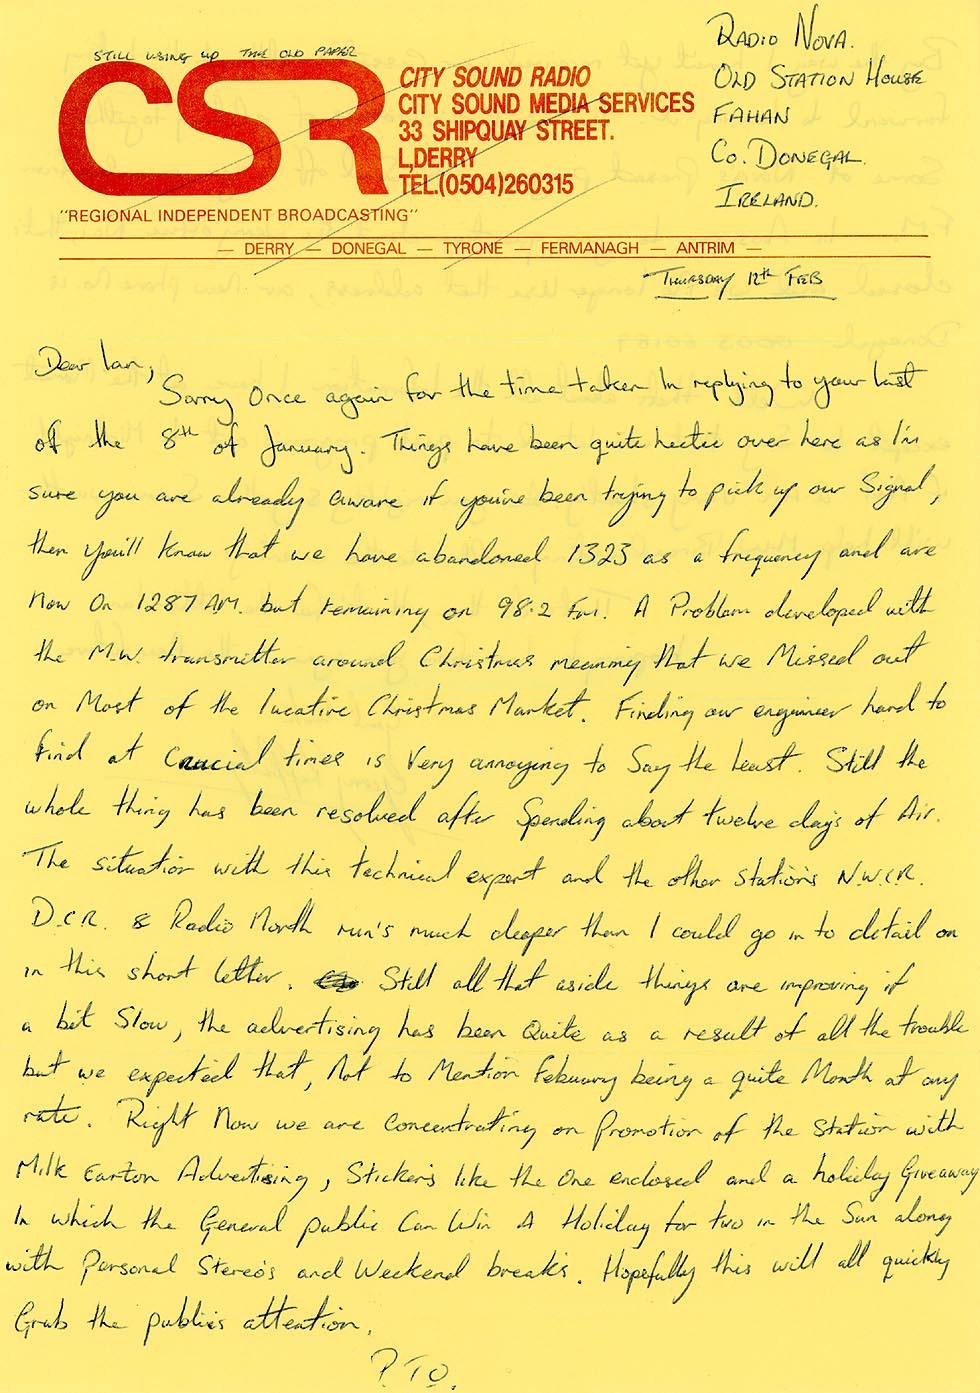 STILL USING UP THE OLD PAPER
CSR
CITY SOUND RADIO
CITY SOUND MEDIA SERVICES
33 SHIPQUAY STREET.
L,DERRY
TEL.(0504)260315
"REGIONAL INDEPENDENT BROADCASTING"
— DERRY — DONEGAL — TYRONE — FERMANAGH — ANTRIM —
RADIO NOVA.
OLD STATION HOUSE
FAHAN
CO. DONEGAL.
IRELAND.
THURSDAY 12th FEB
Dear Ian,
Sorry Once again for the time taken In replying to your last
of the 8th of January. Things have been quite hectic over here as I'm
sure you are already aware if you've been trying to pick up our Signal,
then you'll know that we have abandoned 1323 as a frequency and are
now on 1287 AM. but remaining on 98.2 Fm. A Problem developed with
the M.W. transmitter around Christmas meaning that we Missed out
on Most of the lucative Christmas Market. Finding our engineer hard to
find at Crucial times is Very annoying to Say the Least. Still the
whole thing has been resolved after Spending about twelve days of Air.
The situation with this technical expert and the other Station's N.W.C.R.
D.C.R. & Radio North run's much deeper than I could go in to detail on
in this short letter. Still all that aside things are improving if
a bit Slow, the advertising has been Quite as a result of all the trouble
but we expected that, Not to Mention Febuary being a quite Month at any
rate. Right Now we are Concentrating on Promotion of the Station with
Milk Carton Advertising, Stickers like the One enclosed and a holiday Giveaway
In which the General public Can Win A Holiday for two in the Sun along
with Personal Stereo's and Weekend break's. Hopefully this will all quickly
Grab the publics attention.
P.T.O.